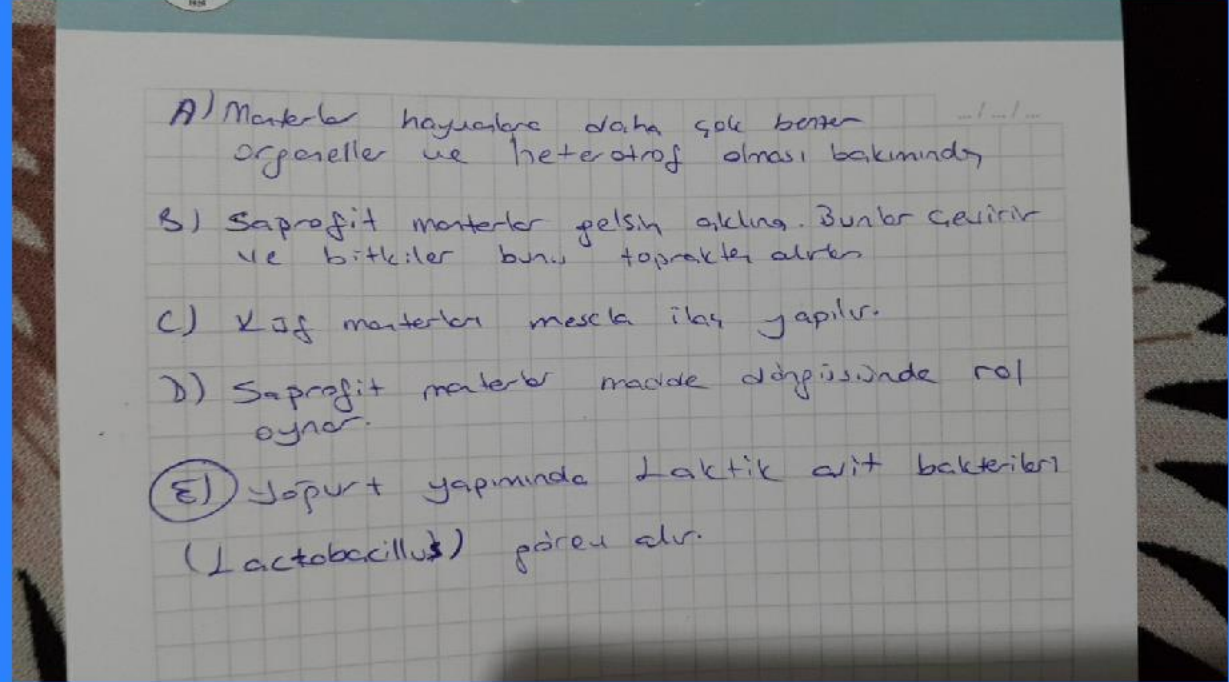 A) Mantarlar hayvanlara daha çok benzer
organeller ve heterotrof olması bakımından
B) Saprofit mantarlar gelsin aklına. Bunlar çevirir
ve bitkiler bunu topraktan alırlar
C) Küf mantarları mesela ilaç yapılır.
D) Saprofit mantarlar madde döngüsünde rol
oynar.
E) Yoğurt yapımında Laktik asit bakterileri
(Lactobacillus) görev alır.